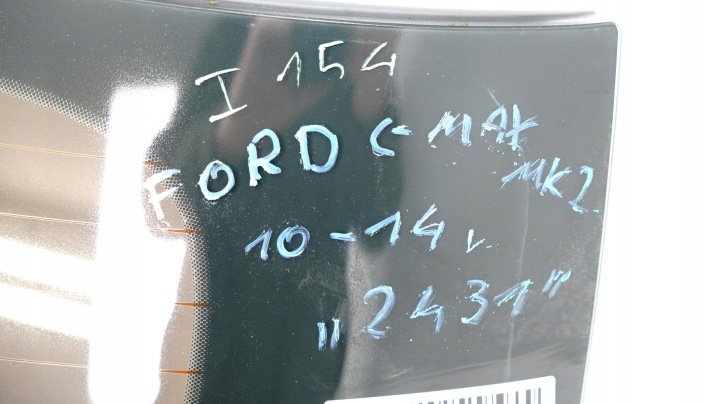 I 154
FORD C-MAX
MK2
10-14r
"2431"